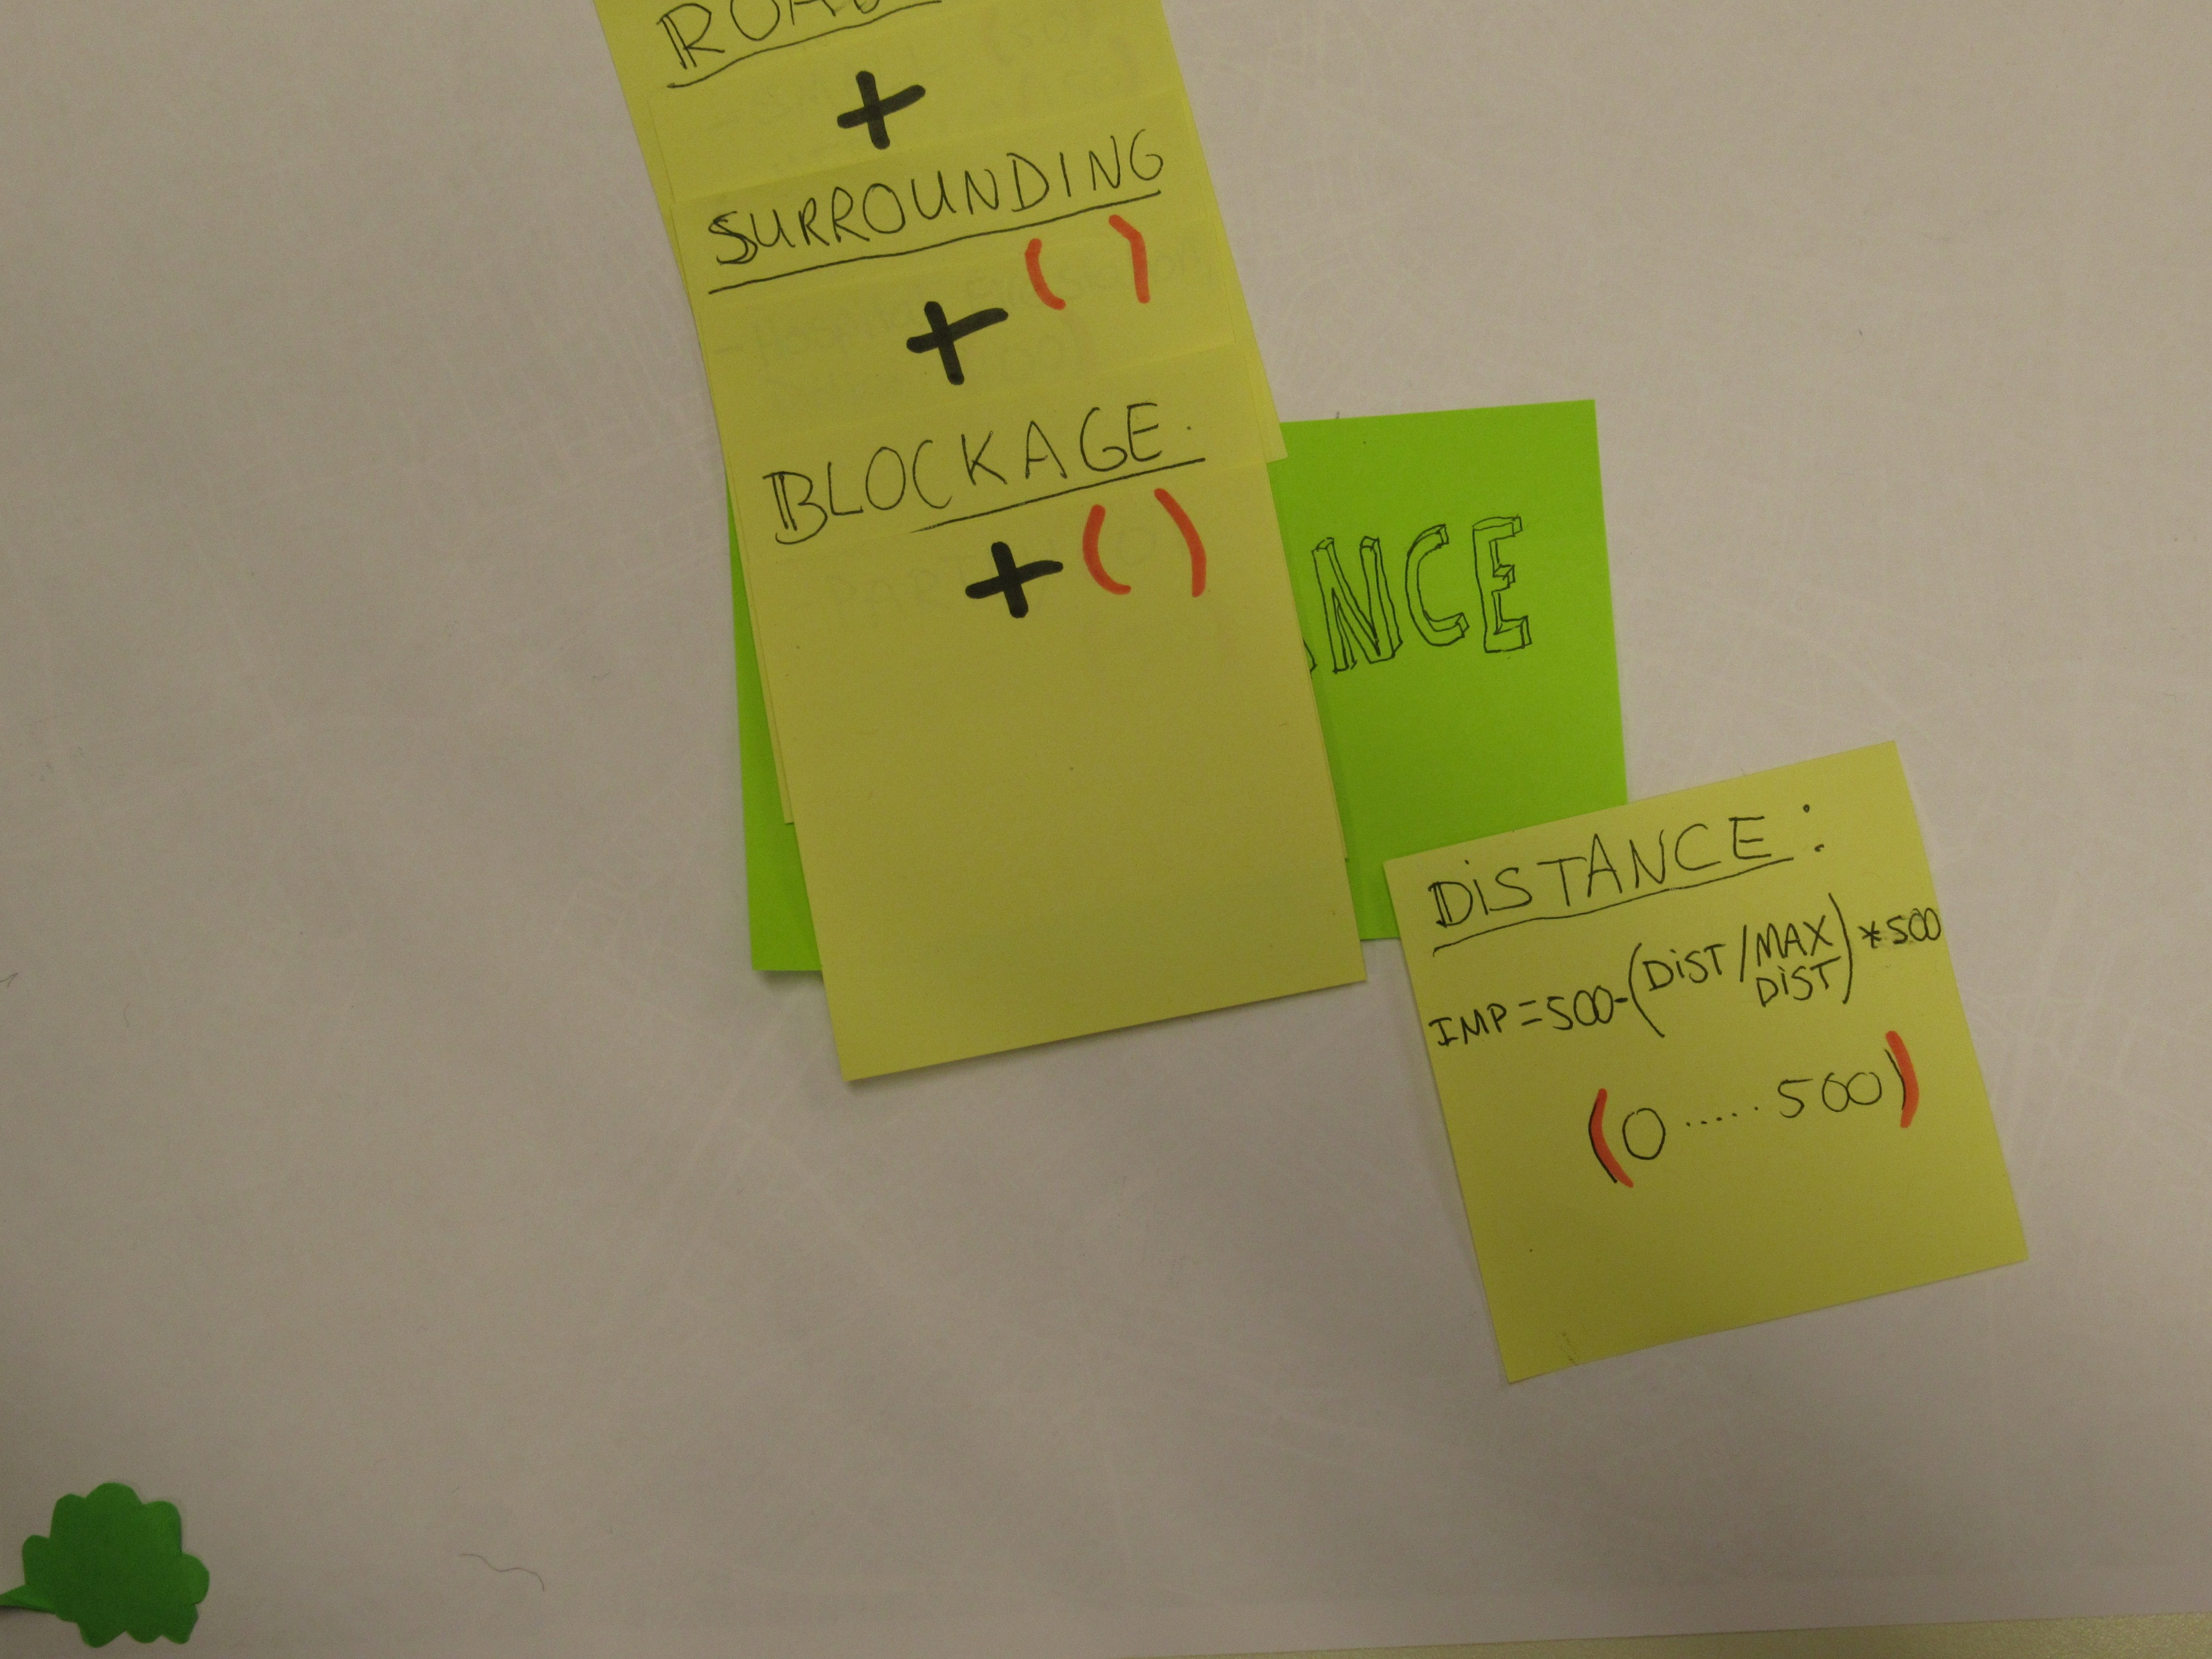 +
SURROUNDING
+ ( )
BLOCKAGE.
+ ( )
NCE
DiSTANCE:
IMP = 500 - (DiST / MAX DiST) * 500
(0 ..... 500)